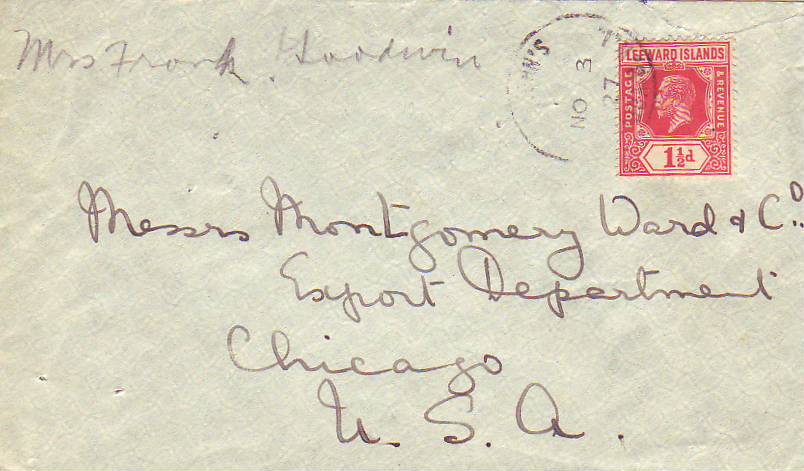 Mrs Frank Goodwin
N'S
NO 3
27
LEEWARD ISLANDS
POSTAGE
& REVENUE
1½d
Messrs Montgomery Ward & Co.,
Export Department
Chicago
U.S.A.